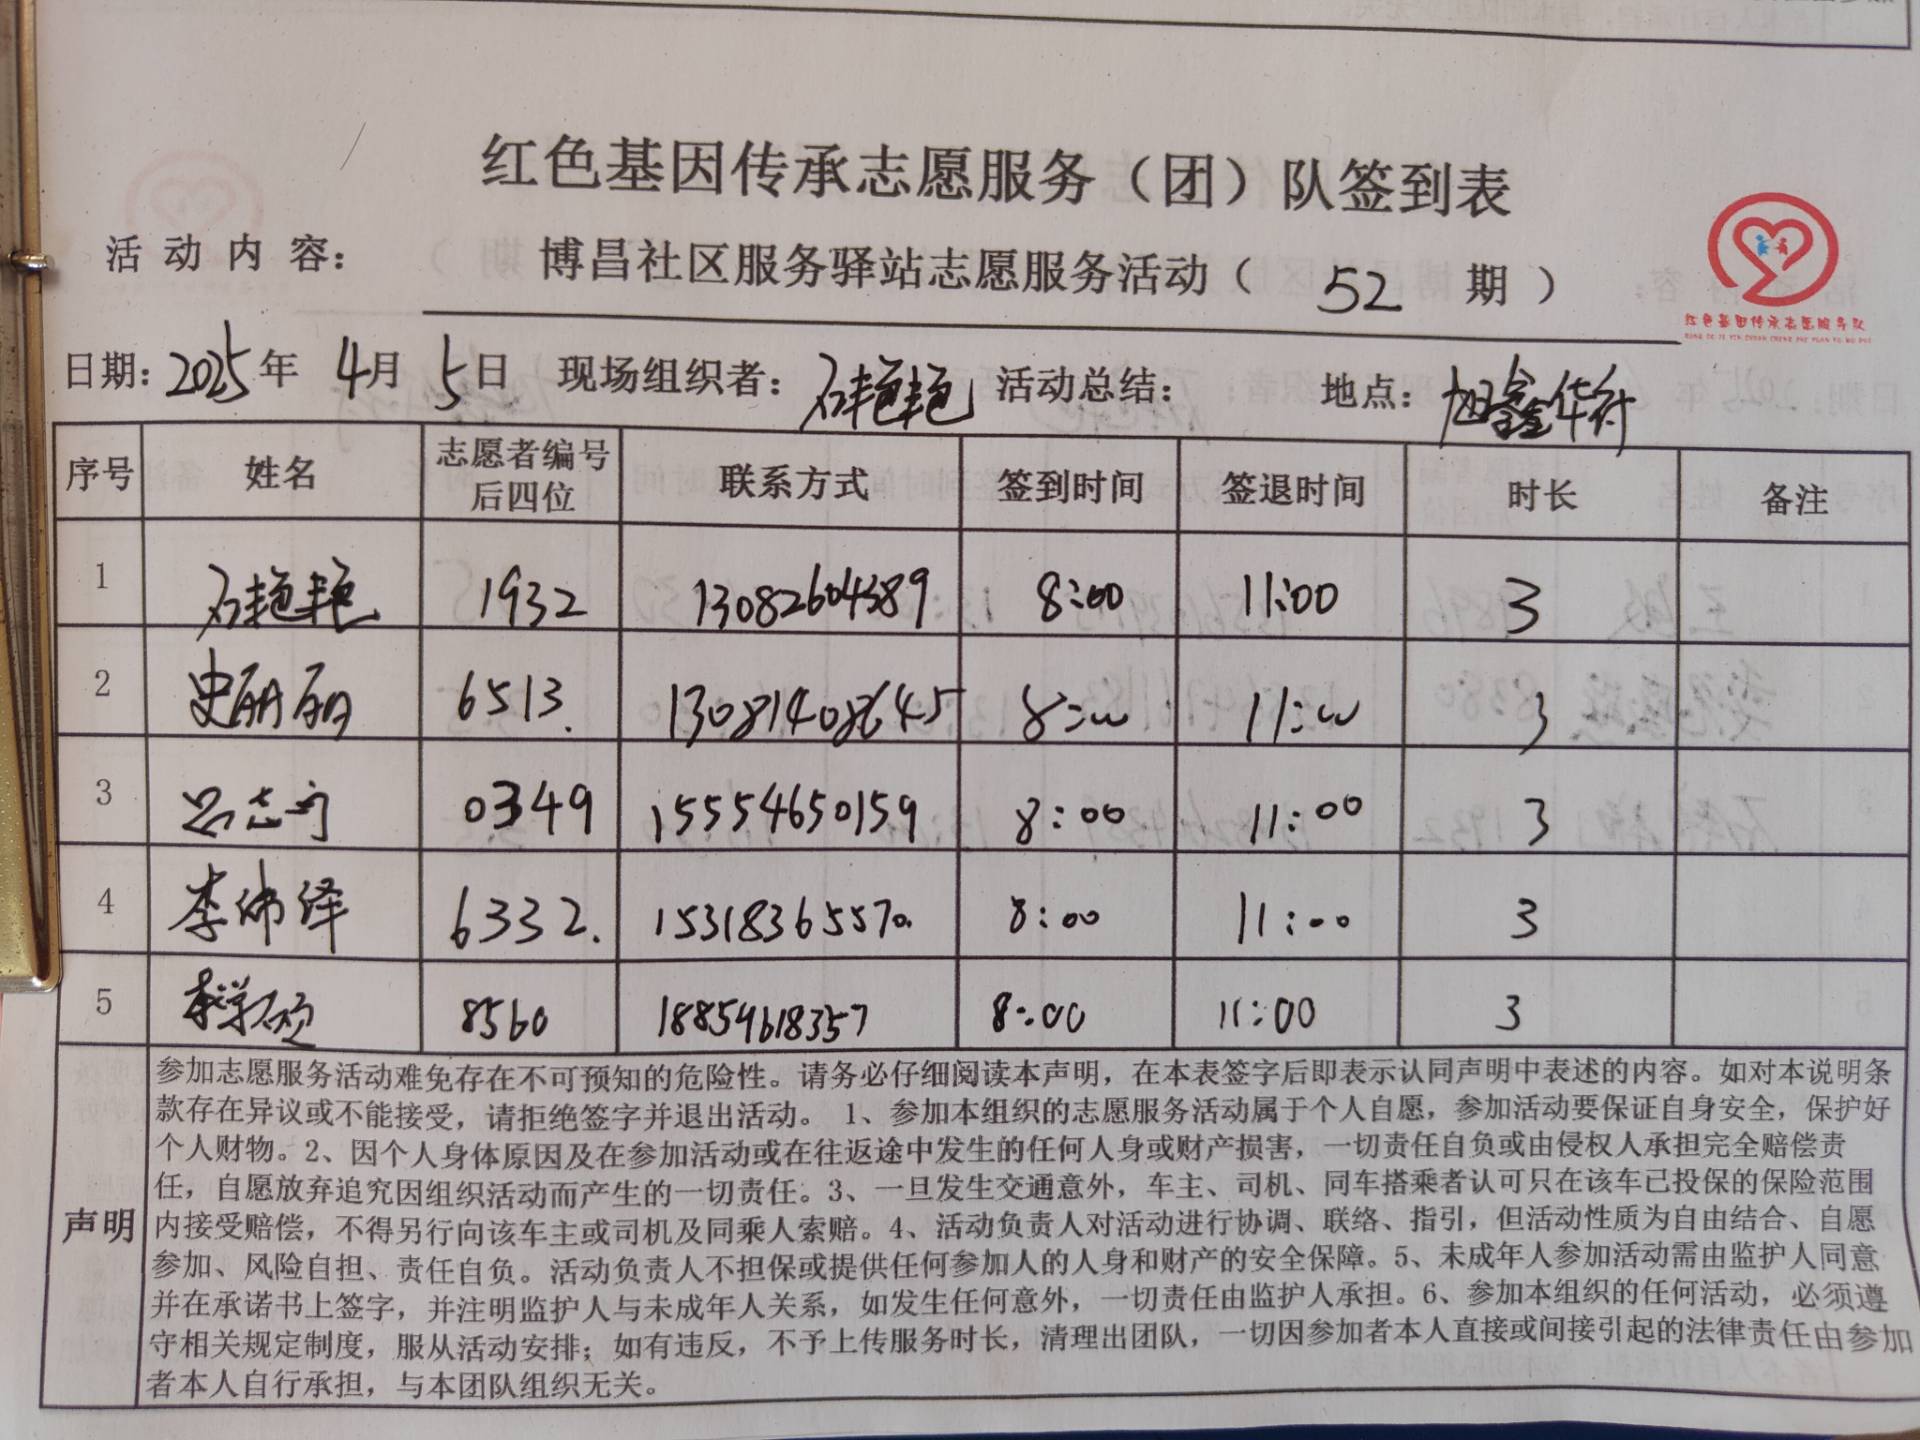 红色基因传承志愿服务（团）队签到表
活动内容： 博昌社区服务驿站志愿服务活动（ 52 期 ）
红色基因传承志愿服务队
日期：2025年 4月 5日 现场组织者：石艳艳 活动总结： 地点：旭鑫华府
序号 姓名 志愿者编号后四位 联系方式 签到时间 签退时间 时长 备注
1 石艳艳 1932 13082604389 8:00 11:00 3
2 史丽丽 6513. 13081408645 8:00 11:00 3
3 吕志宁 0349 15554650159 8:00 11:00 3
4 李炜泽 6332. 15318365570. 8:00 11:00 3
5 8560 18854618357 8:00 11:00 3
声明
参加志愿服务活动难免存在不可预知的危险性。请务必仔细阅读本声明，在本表签字后即表示认同声明中表述的内容。如对本说明条
款存在异议或不能接受，请拒绝签字并退出活动。 1、参加本组织的志愿服务活动属于个人自愿，参加活动要保证自身安全，保护好
个人财物。2、因个人身体原因及在参加活动或在往返途中发生的任何人身或财产损害，一切责任自负或由侵权人承担完全赔偿责
任，自愿放弃追究因组织活动而产生的一切责任。3、一旦发生交通意外，车主、司机、同车搭乘者认可只在该车已投保的保险范围
内接受赔偿，不得另行向该车主或司机及同乘人索赔。4、活动负责人对活动进行协调、联络、指引，但活动性质为自由结合、自愿
参加、风险自担、责任自负。活动负责人不担保或提供任何参加人的人身和财产的安全保障。5、未成年人参加活动需由监护人同意
并在承诺书上签字，并注明监护人与未成年人关系，如发生任何意外，一切责任由监护人承担。6、参加本组织的任何活动，必须遵
守相关规定制度，服从活动安排；如有违反，不予上传服务时长，清理出团队，一切因参加者本人直接或间接引起的法律责任由参加
者本人自行承担，与本团队组织无关。